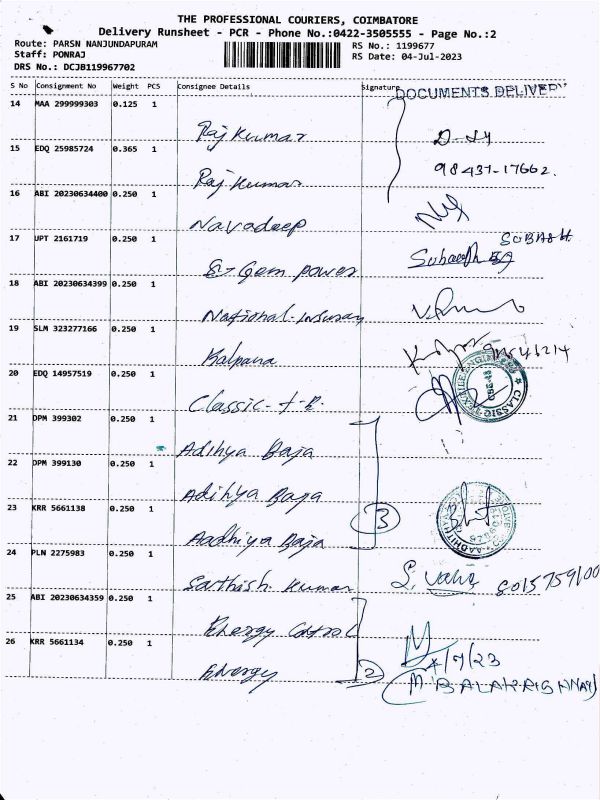 THE PROFESSIONAL COURIERS, COIMBATORE
Delivery Runsheet - PCR - Phone No.:0422-3505555 - Page No.:2
Route: PARSN NANJUNDAPURAM
Staff: PONRAJ
DRS No.: DCJB119967702
RS No.: 1199677
RS Date: 04-Jul-2023
S No Consignment No Weight PCS Consignee Details Signature
DOCUMENTS DELIVERY
14 MAA 299999303 0.125 1
Raj Kumar
15 EDQ 25985724 0.365 1
98431-17662.
Raj Kumar
16 ABI 20230634400 0.250 1
Navadeep
17 UPT 2161719 0.250 1
SUBASH
Gem power
18 ABI 20230634399 0.250 1
National-Insuran
19 SLM 323277166 0.250 1
Kalpana
20 EDQ 14957519 1
CLASSIC TEXTILE ENGINEERS
CBE-45
Classic-T.E.
21 DPM 399302 0.250 1
Adihya Baja
22 DPM 399130 0.250 1
Adihya Baja
23 KRR 5661138 0.250 1
3
Aadhiya Baja
24 PLN 2275983 0.250 1
Sathish Kumar
8015759100
25 ABI 20230634359 0.250 1
Energy Control
26 KRR 5661134 0.250 1
4/7/23
Energy
2
(M BALAKRISHNAN)